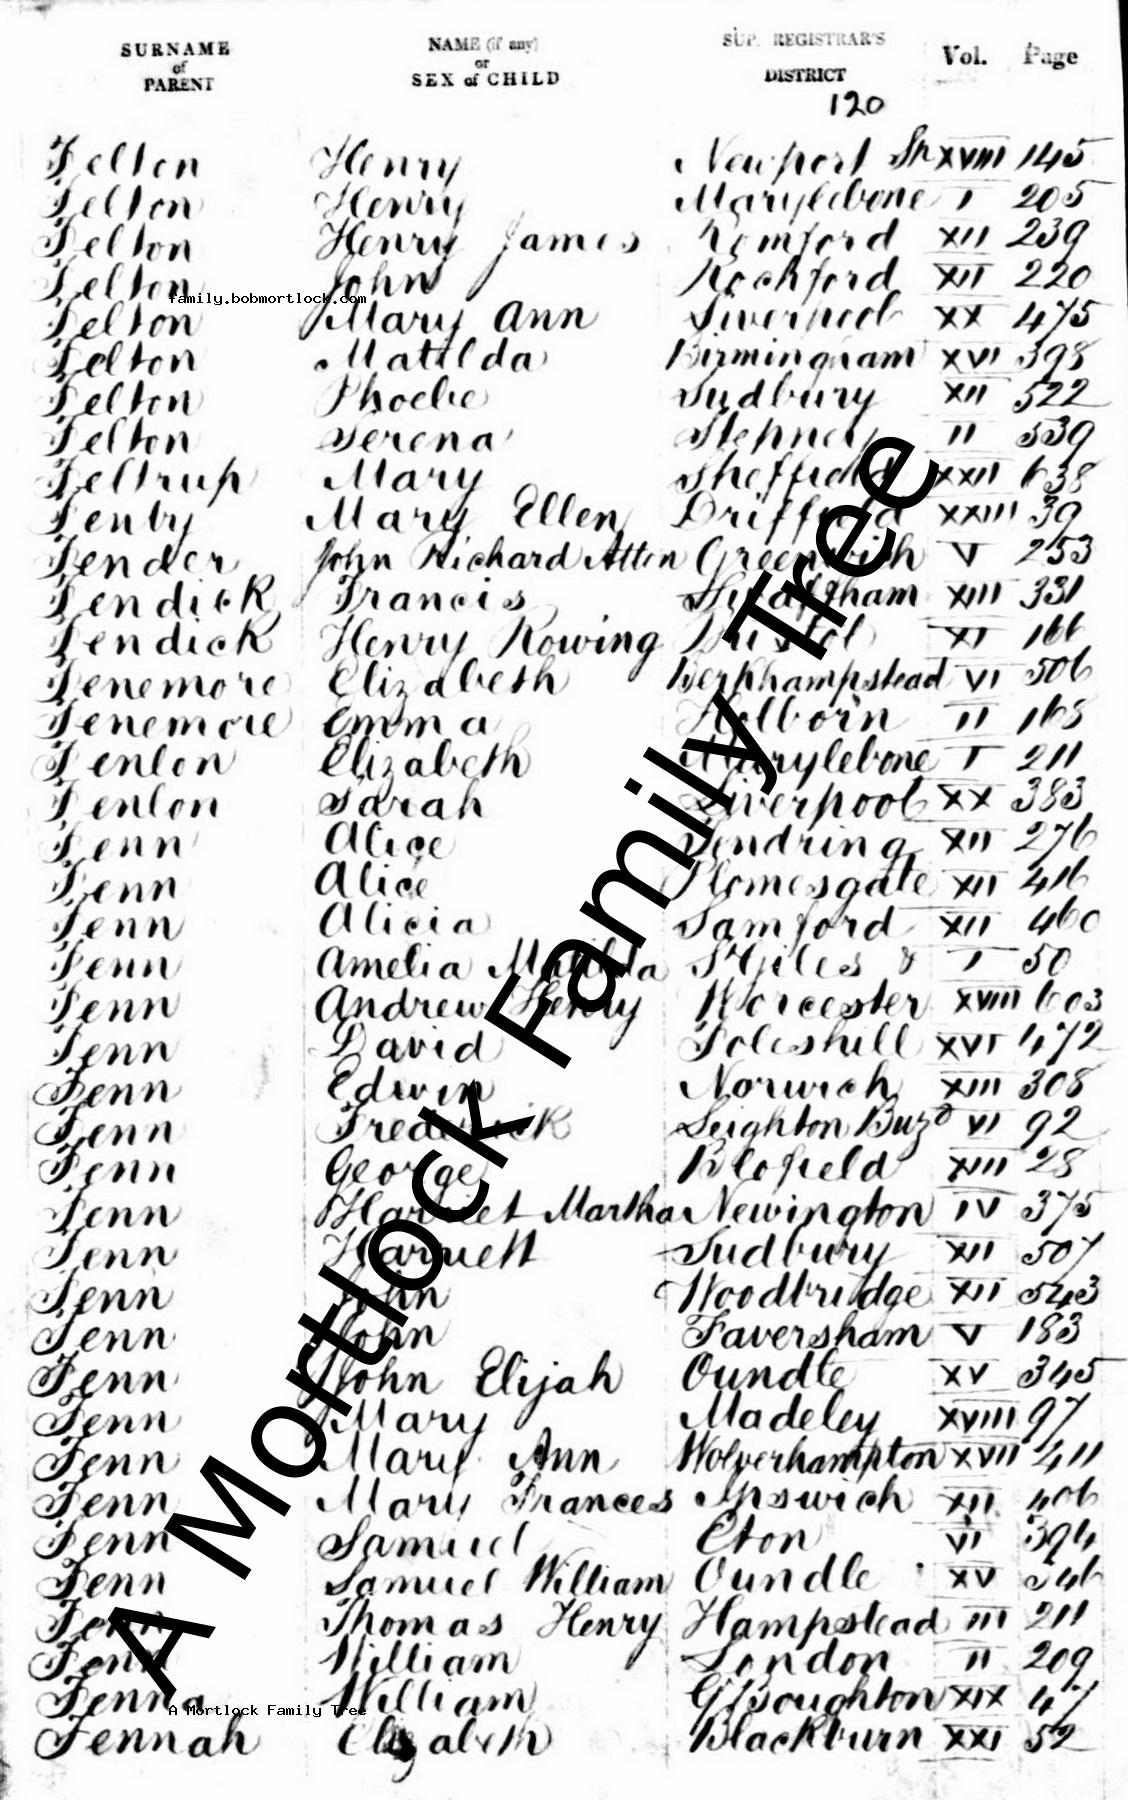 SURNAME of PARENT NAME (if any) or SEX of CHILD SUP. REGISTRAR'S DISTRICT Vol. Page
120
Felton Henry Newport Sh XVIII 145
Felton Henry Marylebone I 205
Felton Henry James Romford XII 239
Felton John Rochford XII 220
family.bobmortlock.com
Felton Mary Ann Liverpool XX 475
Felton Matilda Birmingham XVI 398
Felton Phoebe Sudbury XII 522
Felton Serena Stepney II 539
Feltrup Mary Sheffield XXII 638
Fenby Mary Ellen Driffield XXIII 39
Fender John Richard Atten Greenwich V 253
Fendick Francis Swaffham XIII 331
Fendick Henry Rowing Bristol XI 166
Fenemore Elizabeth Berkhampstead VI 506
Fenemore Emma Holborn II 168
Fenlon Elizabeth Marylebone I 211
Fenlon Sarah Liverpool XX 383
Fenn Alice Tendring XII 276
Fenn Alice Plomesgate XII 416
Fenn Alicia Samford XII 460
Fenn Amelia Matilda St Giles & I 50
Fenn Andrew Henry Worcester XVIII 603
Fenn David Foleshill XVI 472
Fenn Edwin Norwich XIII 308
Fenn Frederick Leighton Buzd VI 92
Fenn George Blofield XIII 28
Fenn Harriet Martha Newington IV 375
Fenn Harriett Sudbury XII 507
Fenn John Woodbridge XII 543
Fenn John Faversham V 183
Fenn John Elijah Oundle XV 345
Fenn Mary Madeley XVIII 97
Fenn Mary Ann Wolverhampton XVII 411
Fenn Mary Frances Ipswich XII 406
Fenn Samuel Eton VI 394
Fenn Samuel William Oundle XV 346
Fenn Thomas Henry Hampstead III 211
Fenn William London II 209
Fenna William Gt Boughton XIX 47
A Mortlock Family Tree
Fennah Elizabeth Blackburn XXI 52
A Mortlock Family Tree